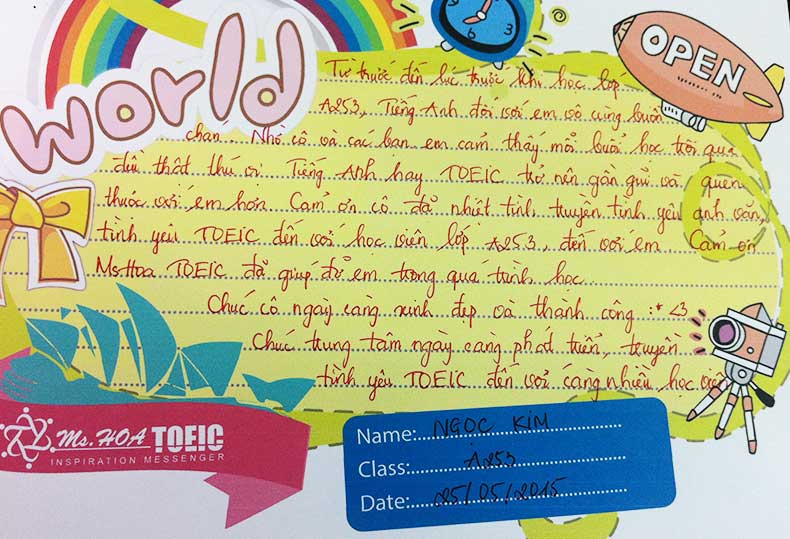 world
OPEN
Từ trước đến lúc trước khi học lớp
A253, Tiếng Anh đối với em vô cùng buồn
chán. Nhờ cô và các bạn em cảm thấy mỗi buổi học trôi qua
đều thật thú vị. Tiếng Anh hay TOEIC trở nên gần gũi và quen
thuộc với em hơn. Cảm ơn cô đã nhiệt tình truyền tình yêu anh văn,
tình yêu TOEIC đến với học viên lớp A253, đến với em. Cảm ơn
Ms Hoa TOEIC đã giúp đỡ em trong quá trình học.
Chúc cô ngày càng xinh đẹp và thành công :* <3
Chúc trung tâm ngày càng phát triển, truyền
tình yêu TOEIC đến với càng nhiều học viên
Ms. HOA TOEIC
INSPIRATION MESSENGER
Name: NGỌC KIM
Class: A253
Date: 25/05/2015